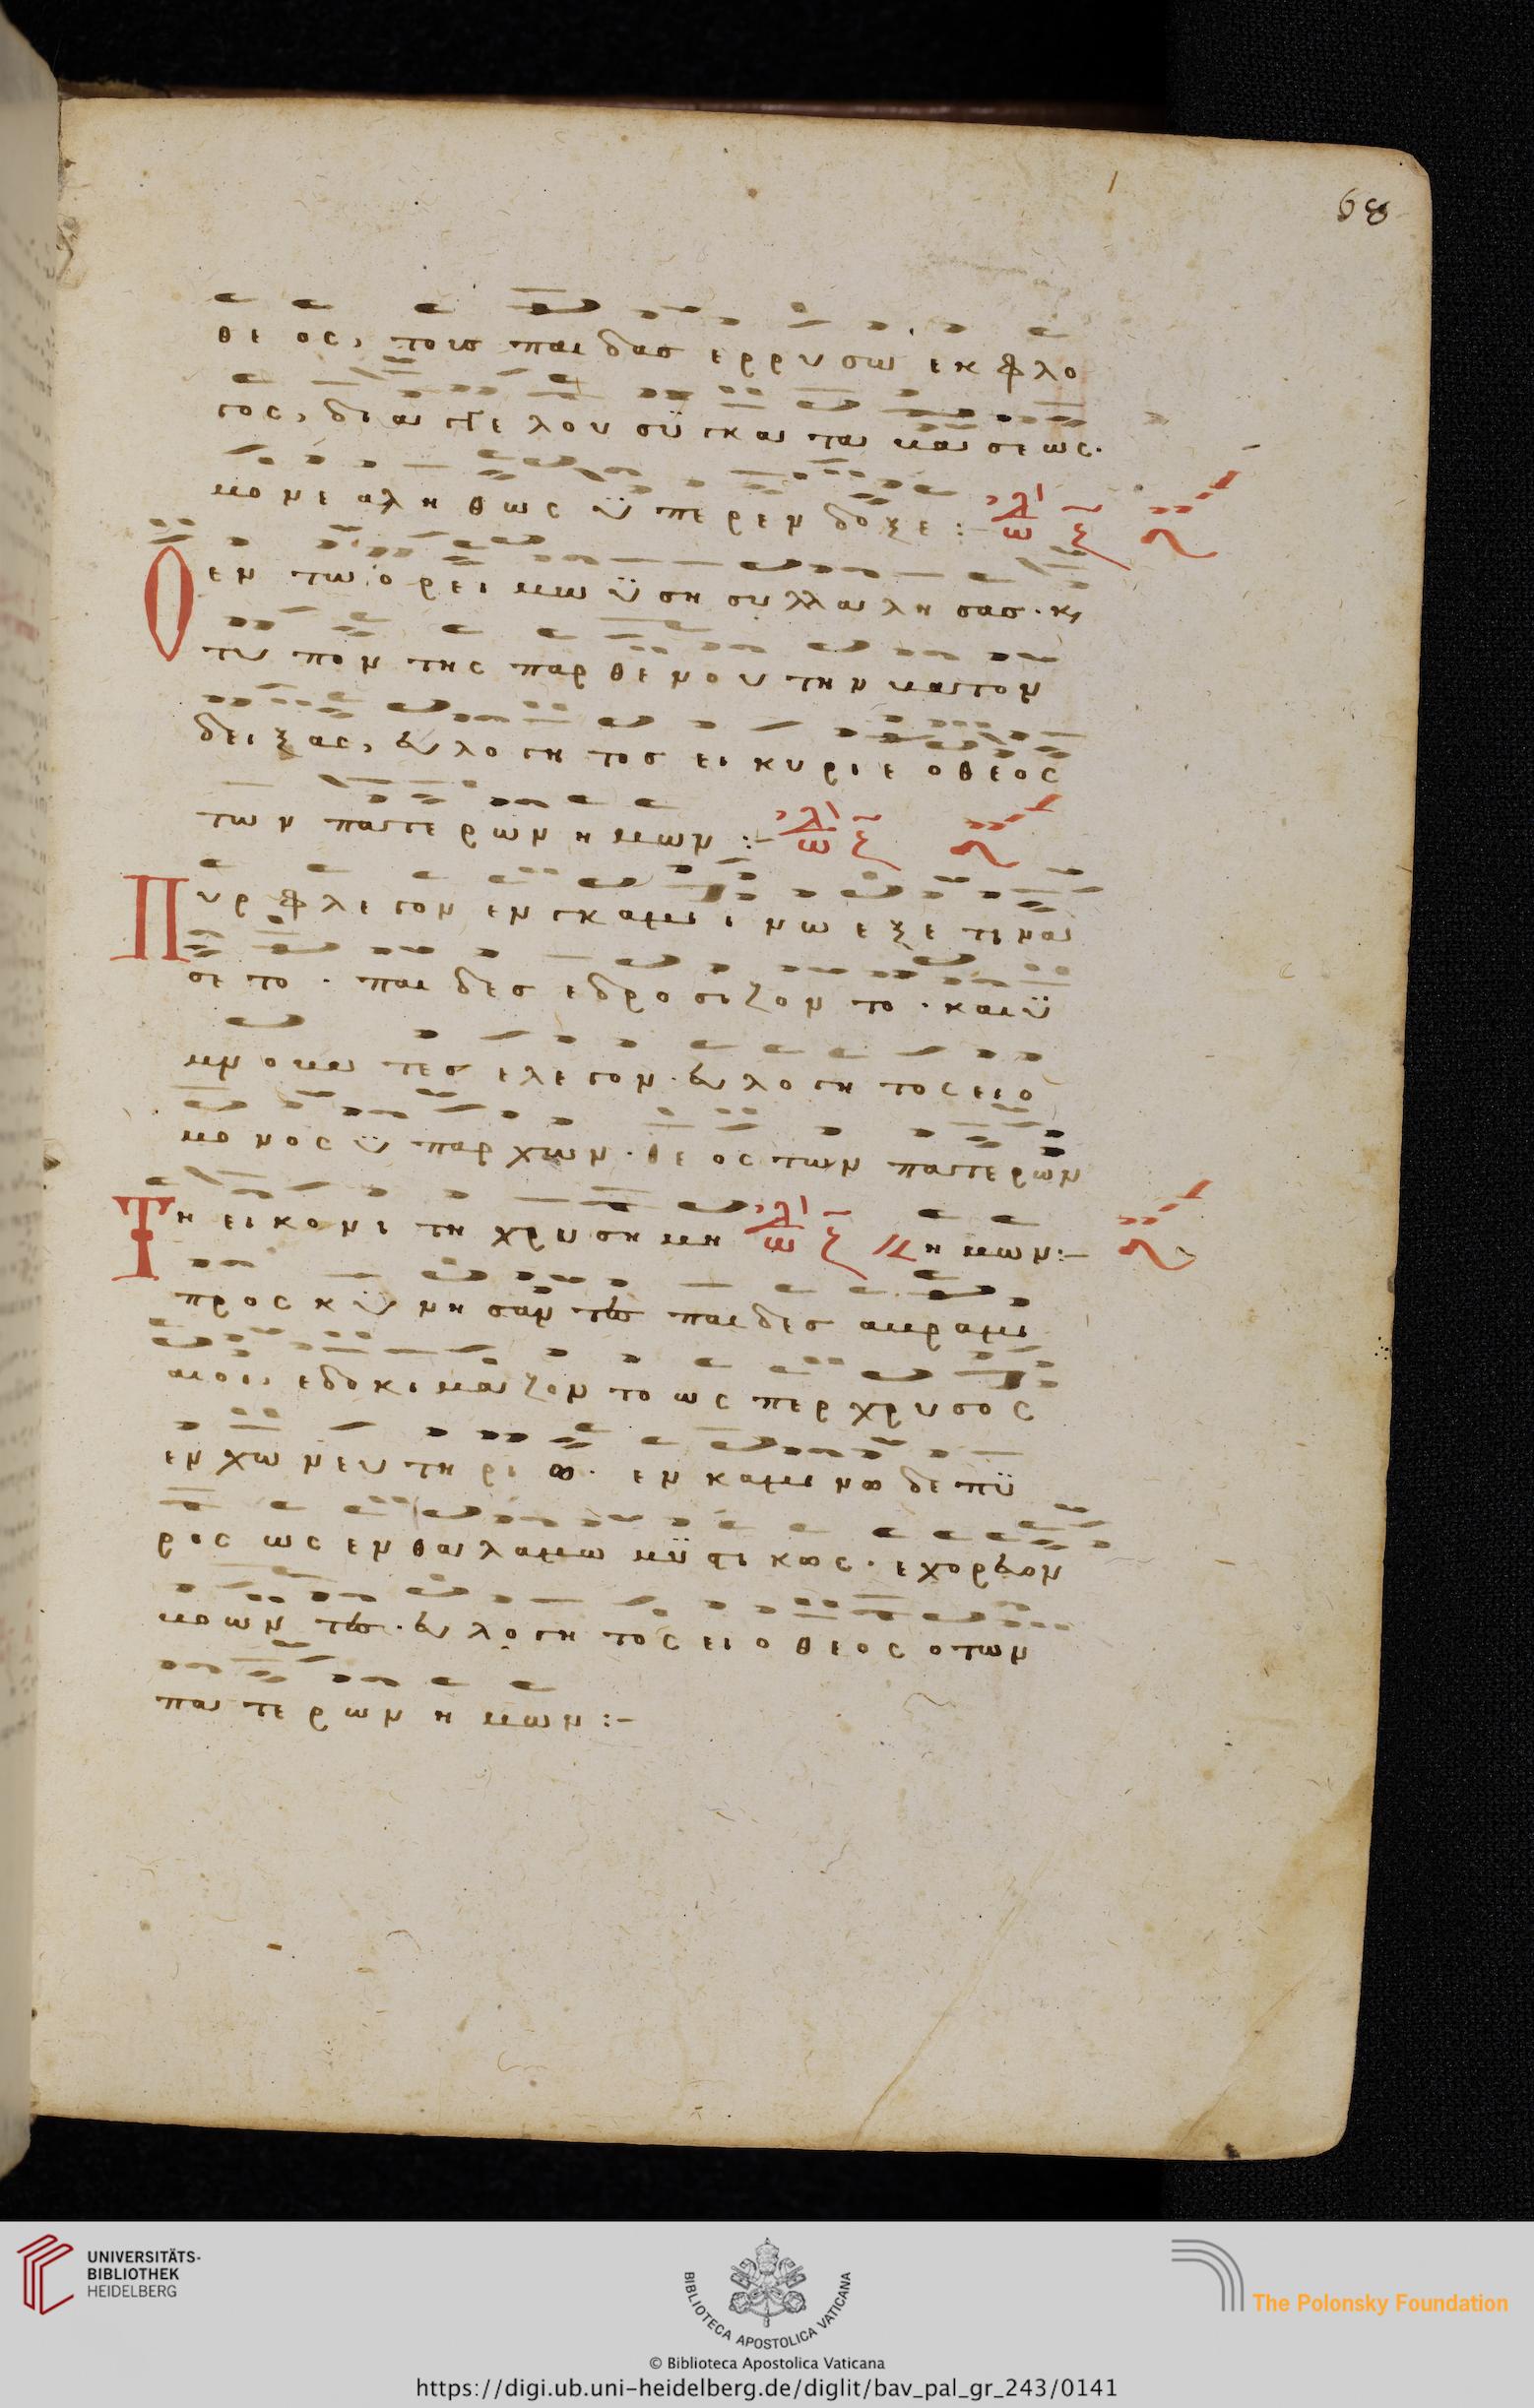 68
θε ος, τους παι δας ερρυσω εκ φλο
γος, δι αγγε λου συγκα τα βα σε ως.
μο νε αλη θως ϋ πε ρεν δο ξε :-
Ο εν τω ο ρει μω ϋ ση συλλα λη σας. κ,
τυ πον της παρ θε νου την βατον
δει ξας, ευλο γη τος ει κυριε ο θεος
των πατε ρων η μων :-
Πυρ φλε γον εν καμι νω εξε τι να
σε το. παι δες εδρο σιζον το. και ϋ
μν ο
μο νος ϋ παρ χων. θε ος των πατερων
Τη εικονι τη χρυση μη η μων :-
προσκυ νη σαν τες παι δες αβραμι
αιοι, εδοκι μαζον το ως περ χρυσος
εν χω νευ τη ρι ω. εν καμι νω δε πϋ
ρος ως εν θαλαμω εχορευον
ευλο γη τος ει ο θεος ο των
πα τε ρων η μων :-
UNIVERSITÄTS-
BIBLIOTHEK
HEIDELBERG
BIBLIOTECA APOSTOLICA VATICANA
The Polonsky Foundation
© Biblioteca Apostolica Vaticana
https://digi.ub.uni-heidelberg.de/diglit/bav_pal_gr_243/0141